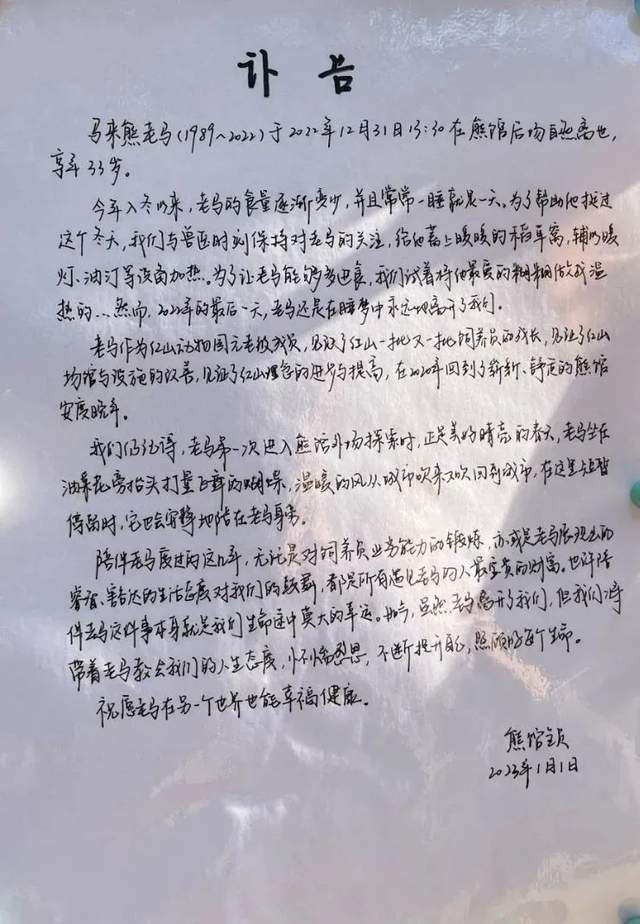 讣 告
马来熊老马(1989~2022)于2022年12月31日13:30在熊馆后场自然离世,
享年33岁。
今年入冬以来,老马的食量逐渐变少,并且常常一睡就是一天。为了帮助他挺过
这个冬天,我们与兽医时刻保持对老马的关注,给他盖上暖暖的稻草窝,辅以暖
灯、油汀等设备加热。为了让老马能够多进食,我们试着将他最爱的糊糊做成温
热的...然而,2022年的最后一天,老马还是在睡梦中永远地离开了我们。
老马作为红山动物园元老级成员,见证了红山一批又一批饲养员的成长,见证了红山
场馆与设施的改善,见证了红山理念的进步与提高,在2020年回到了崭新、舒适的熊馆
安度晚年。
我们仍记得,老马第一次进入熊馆外场探索时,正是美好晴亮的春天,老马坐在
油菜花旁抬头打量飞舞的蝴蝶,温暖的风从城市吹来又吹回到城市,在这里短暂
停留时,它也会安静地陪在老马身旁。
陪伴老马度过的这几年,无论是对饲养员业务能力的锻炼,亦或是老马展现出的
睿智、豁达的生活态度对我们的鼓舞,都是所有遇见老马的人最宝贵的财富。也许陪
伴老马这件事本身就是我们生命途中莫大的幸运。如今,虽然老马离开了我们,但我们将
带着老马教会我们的人生态度,心怀感恩,不断提升自己,照顾好每个生命。
祝愿老马在另一个世界也能幸福健康。
熊馆全员
2023年1月1日